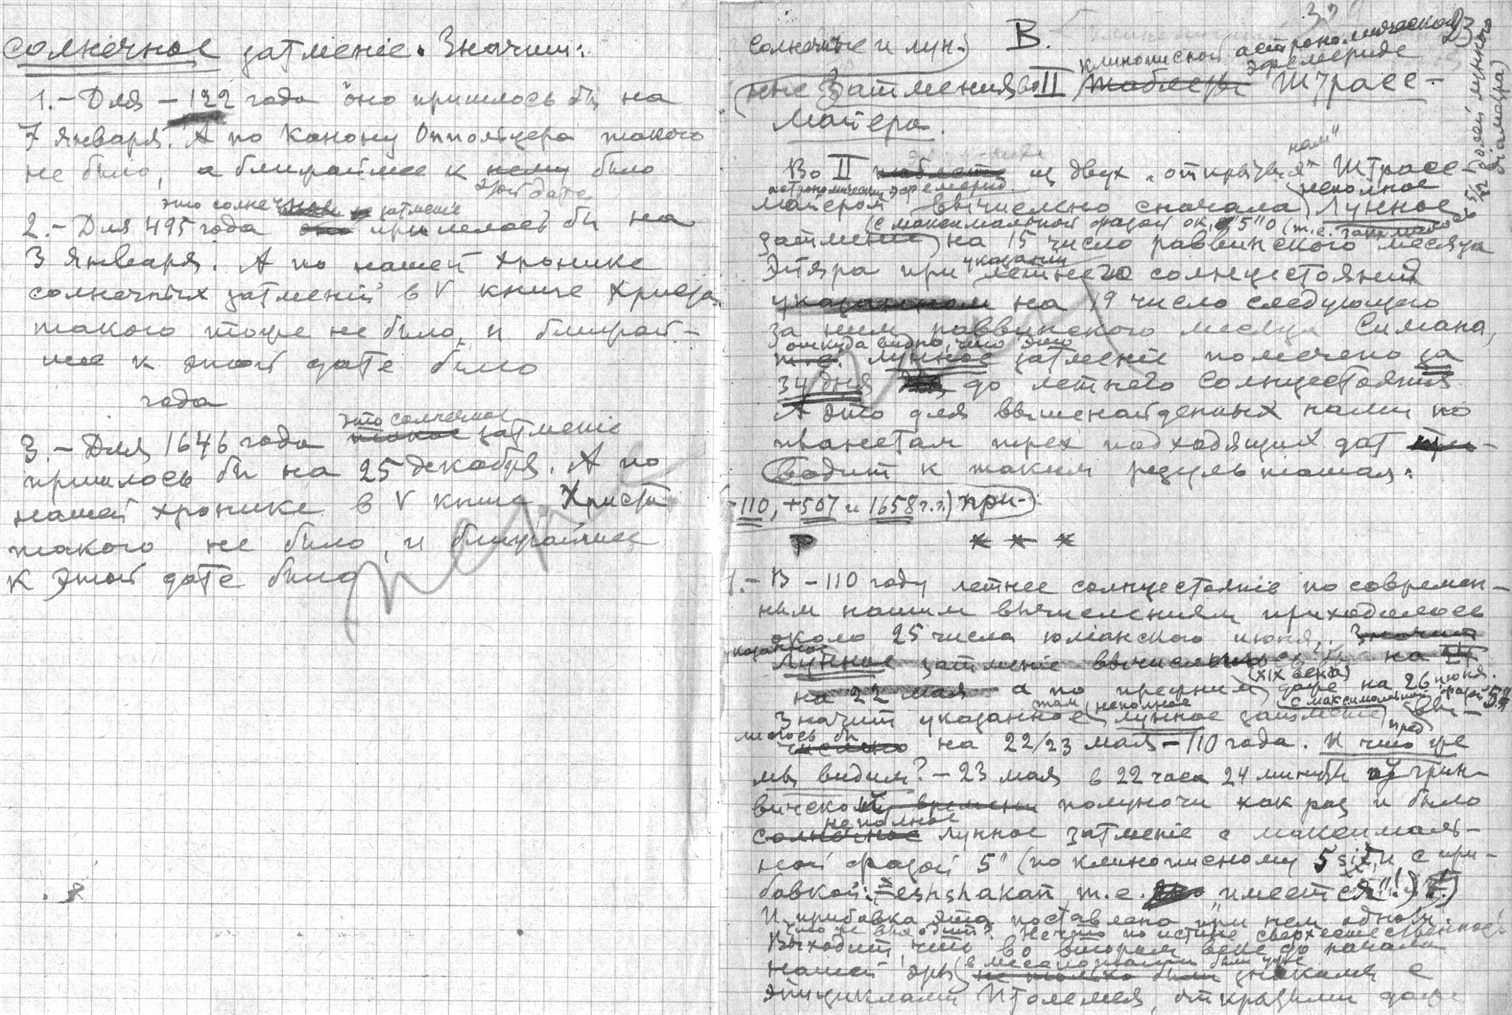 солнечное затменіе. Значит:
1.– Для –122 года оно пришлось бы на
7 января. А по Канону Оппольцера такого
не было, а ближайшее к нему было
этой дате
это солнечное затменіе
2.– Для 495 года оно пришлось бы на
3 января. А по нашей хронике
солнечных затменій в V книге Христа
такого тоже не было, и ближай-
шее к этой дате было
года
это солнечное
3.– Для 1646 года такое затменіе
пришлось бы на 25 декабря. А по
нашей хронике в V книге Христа
такого не было, и ближайшее
к этой дате было
23
солнечные и лун- В.
клинописной астрономической
эфемериде
ные Затмения во II таблеты Штрасс-
майера.
нам"
Во II таблете из двух „открытых" Штрасс-
астрономических эфемерид неполное
майером вычислено сначала Лунное
(с максимальной фазой ок. 5"0 (т.е.
затменіе на 15 число раввинского месяца
Этяра при указании летнего солнцестояния
указанном на 19 число следующего
за ним раввинского месяца Симана,
откуда видно, что это
т.е. лунное затменіе помечено за
34 дня до летнего солнцестояния
А это для вышенайденных нами по
планетам трех подходящих дат при-
водит к таким результатам:
–110, +507 и 1658 г.г.) при-
* * *
1.– В –110 году летнее солнцестояніе по современ-
ным нашим вычислениям приходилось
около 25 числа юліанского июня, Значит
Лунное затменіе вычислялось бы на 24
на 22 мая а по прежним (XIX века) даже на 26 июня.
там неполное с максимальной фазой 5"
Значит указанное лунное затменіе вы-
числено на 22/23 мая –110 года. И что же
мы видим? – 23 мая в 22 часа 24 минуты от грин-
вичской времени полуночи как раз и было
неполное
солнечное лунное затменіе с максималь-
ной фазой 5" (по клинописному 5 si, и с при-
бавкой: т.е. имеется"!)
И прибавка эта поставлена при нем одном.
Что же выходит? Нечто по истине сверхестественное
Выходит что во втором веке до начала
нашей эры в месопотамии были уже
не только были знакомы с
эпициклами Птолемея, открытыми даже